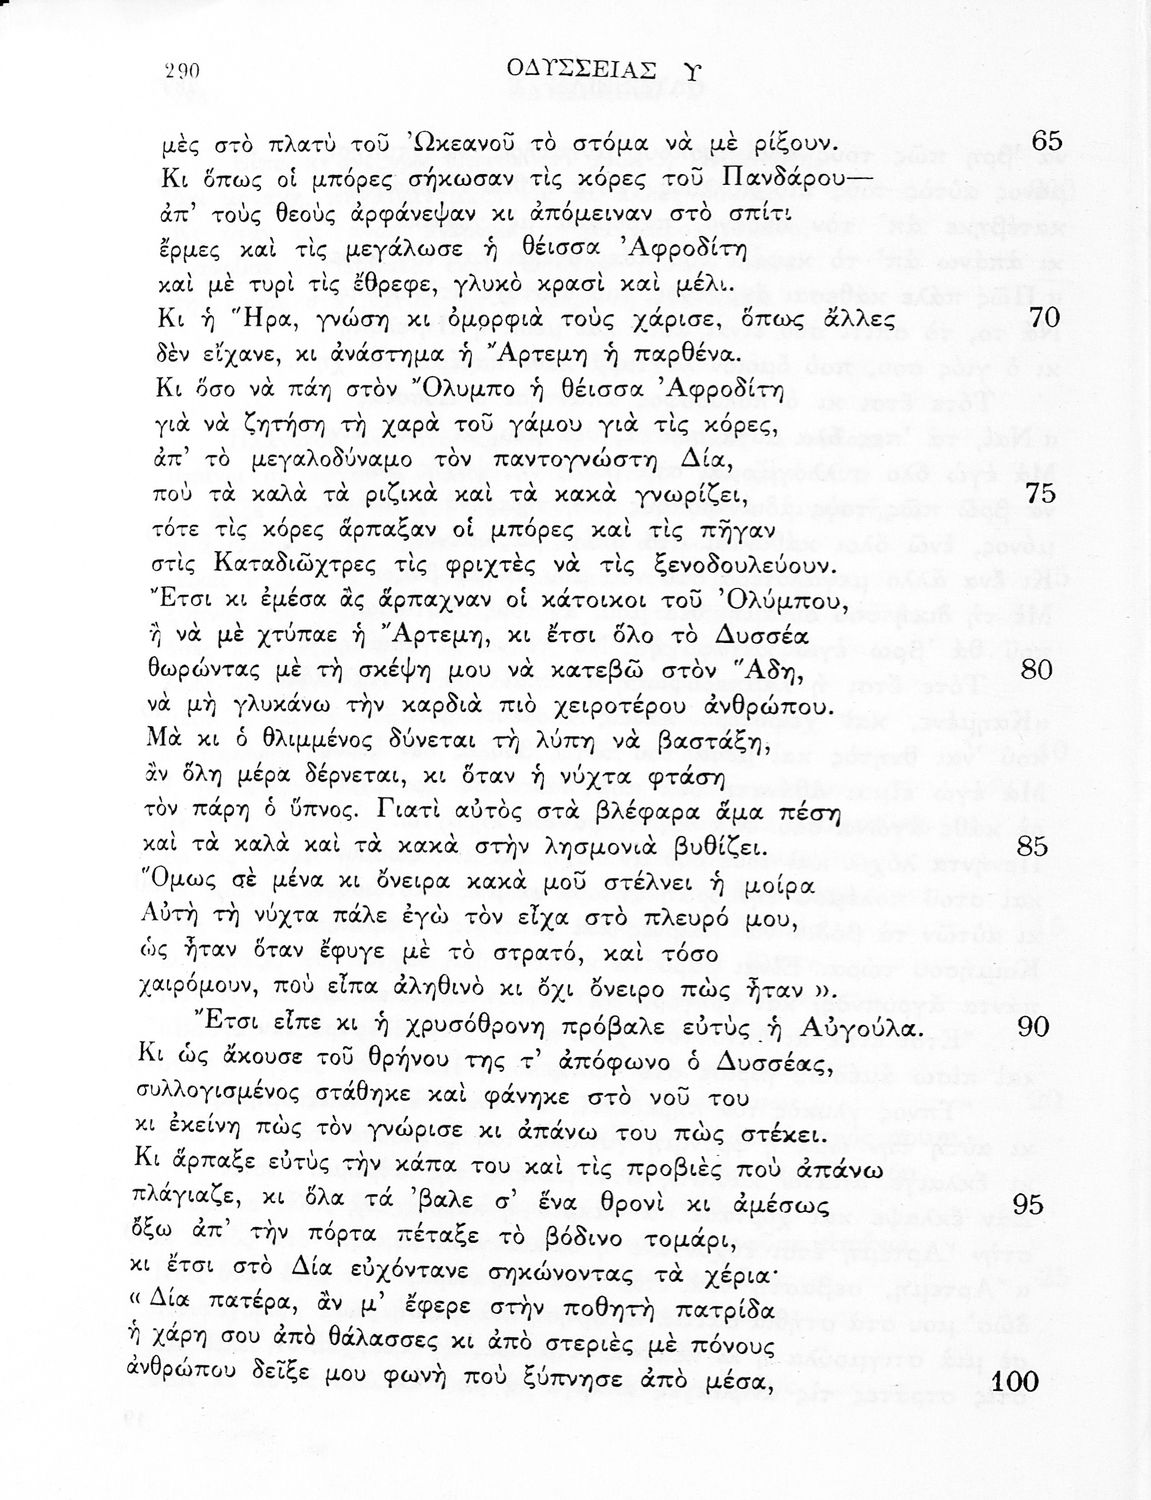 290 ΟΔΥΣΣΕΙΑΣ Υ
μὲς στὸ πλατὺ τοῦ Ὠκεανοῦ τὸ στόμα νὰ μὲ ρίξουν. 65
Κι ὅπως οἱ μπόρες σήκωσαν τὶς κόρες τοῦ Πανδάρου—
ἀπ’ τοὺς θεοὺς ἀρφάνεψαν κι ἀπόμειναν στὸ σπίτι
ἔρμες καὶ τὶς μεγάλωσε ἡ θέισσα Ἀφροδίτη
καὶ μὲ τυρὶ τὶς ἔθρεφε, γλυκὸ κρασὶ καὶ μέλι.
Κι ἡ Ἥρα, γνώση κι ὀμορφιὰ τοὺς χάρισε, ὅπως ἄλλες 70
δὲν εἴχανε, κι ἀνάστημα ἡ Ἄρτεμη ἡ παρθένα.
Κι ὅσο νὰ πάη στὸν Ὄλυμπο ἡ θέισσα Ἀφροδίτη
γιὰ νὰ ζητήση τὴ χαρὰ τοῦ γάμου γιὰ τὶς κόρες,
ἀπ’ τὸ μεγαλοδύναμο τὸν παντογνώστη Δία,
ποὺ τὰ καλὰ τὰ ριζικὰ καὶ τὰ κακὰ γνωρίζει, 75
τότε τὶς κόρες ἅρπαξαν οἱ μπόρες καὶ τὶς πῆγαν
στὶς Καταδιῶχτρες τὶς φριχτὲς νὰ τὶς ξενοδουλεύουν.
Ἔτσι κι ἐμέσα ἂς ἅρπαχναν οἱ κάτοικοι τοῦ Ὀλύμπου,
ἢ νὰ μὲ χτύπαε ἡ Ἄρτεμη, κι ἔτσι ὅλο τὸ Δυσσέα
θωρώντας μὲ τὴ σκέψη μου νὰ κατεβῶ στὸν Ἅδη, 80
νὰ μὴ γλυκάνω τὴν καρδιὰ πιὸ χειροτέρου ἀνθρώπου.
Μὰ κι ὁ θλιμμένος δύνεται τὴ λύπη νὰ βαστάξη,
ἂν ὅλη μέρα δέρνεται, κι ὅταν ἡ νύχτα φτάση
τὸν πάρη ὁ ὕπνος. Γιατὶ αὐτὸς στὰ βλέφαρα ἅμα πέση
καὶ τὰ καλὰ καὶ τὰ κακὰ στὴν λησμονιὰ βυθίζει. 85
Ὅμως σὲ μένα κι ὄνειρα κακὰ μοῦ στέλνει ἡ μοίρα
Αὐτὴ τὴ νύχτα πάλε ἐγὼ τὸν εἶχα στὸ πλευρό μου,
ὡς ἦταν ὅταν ἔφυγε μὲ τὸ στρατό, καὶ τόσο
χαιρόμουν, ποὺ εἶπα ἀληθινὸ κι ὄχι ὄνειρο πὼς ἦταν ».
Ἔτσι εἶπε κι ἡ χρυσόθρονη πρόβαλε εὐτὺς ἡ Αὐγούλα. 90
Κι ὡς ἄκουσε τοῦ θρήνου της τ’ ἀπόφωνο ὁ Δυσσέας,
συλλογισμένος στάθηκε καὶ φάνηκε στὸ νοῦ του
κι ἐκείνη πὼς τὸν γνώρισε κι ἀπάνω του πὼς στέκει.
Κι ἅρπαξε εὐτὺς τὴν κάπα του καὶ τὶς προβιὲς ποὺ ἀπάνω
πλάγιαζε, κι ὅλα τά ’βαλε σ’ ἕνα θρονὶ κι ἀμέσως 95
ὄξω ἀπ’ τὴν πόρτα πέταξε τὸ βόδινο τομάρι,
κι ἔτσι στὸ Δία εὐχόντανε σηκώνοντας τὰ χέρια·
« Δία πατέρα, ἂν μ’ ἔφερε στὴν ποθητὴ πατρίδα
ἡ χάρη σου ἀπὸ θάλασσες κι ἀπὸ στεριὲς μὲ πόνους
ἀνθρώπου δεῖξε μου φωνὴ ποὺ ξύπνησε ἀπὸ μέσα, 100